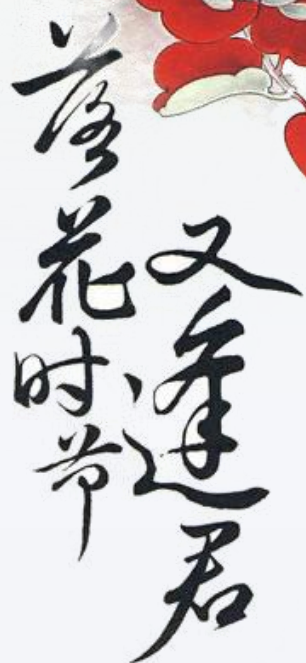 落花时节
又逢君